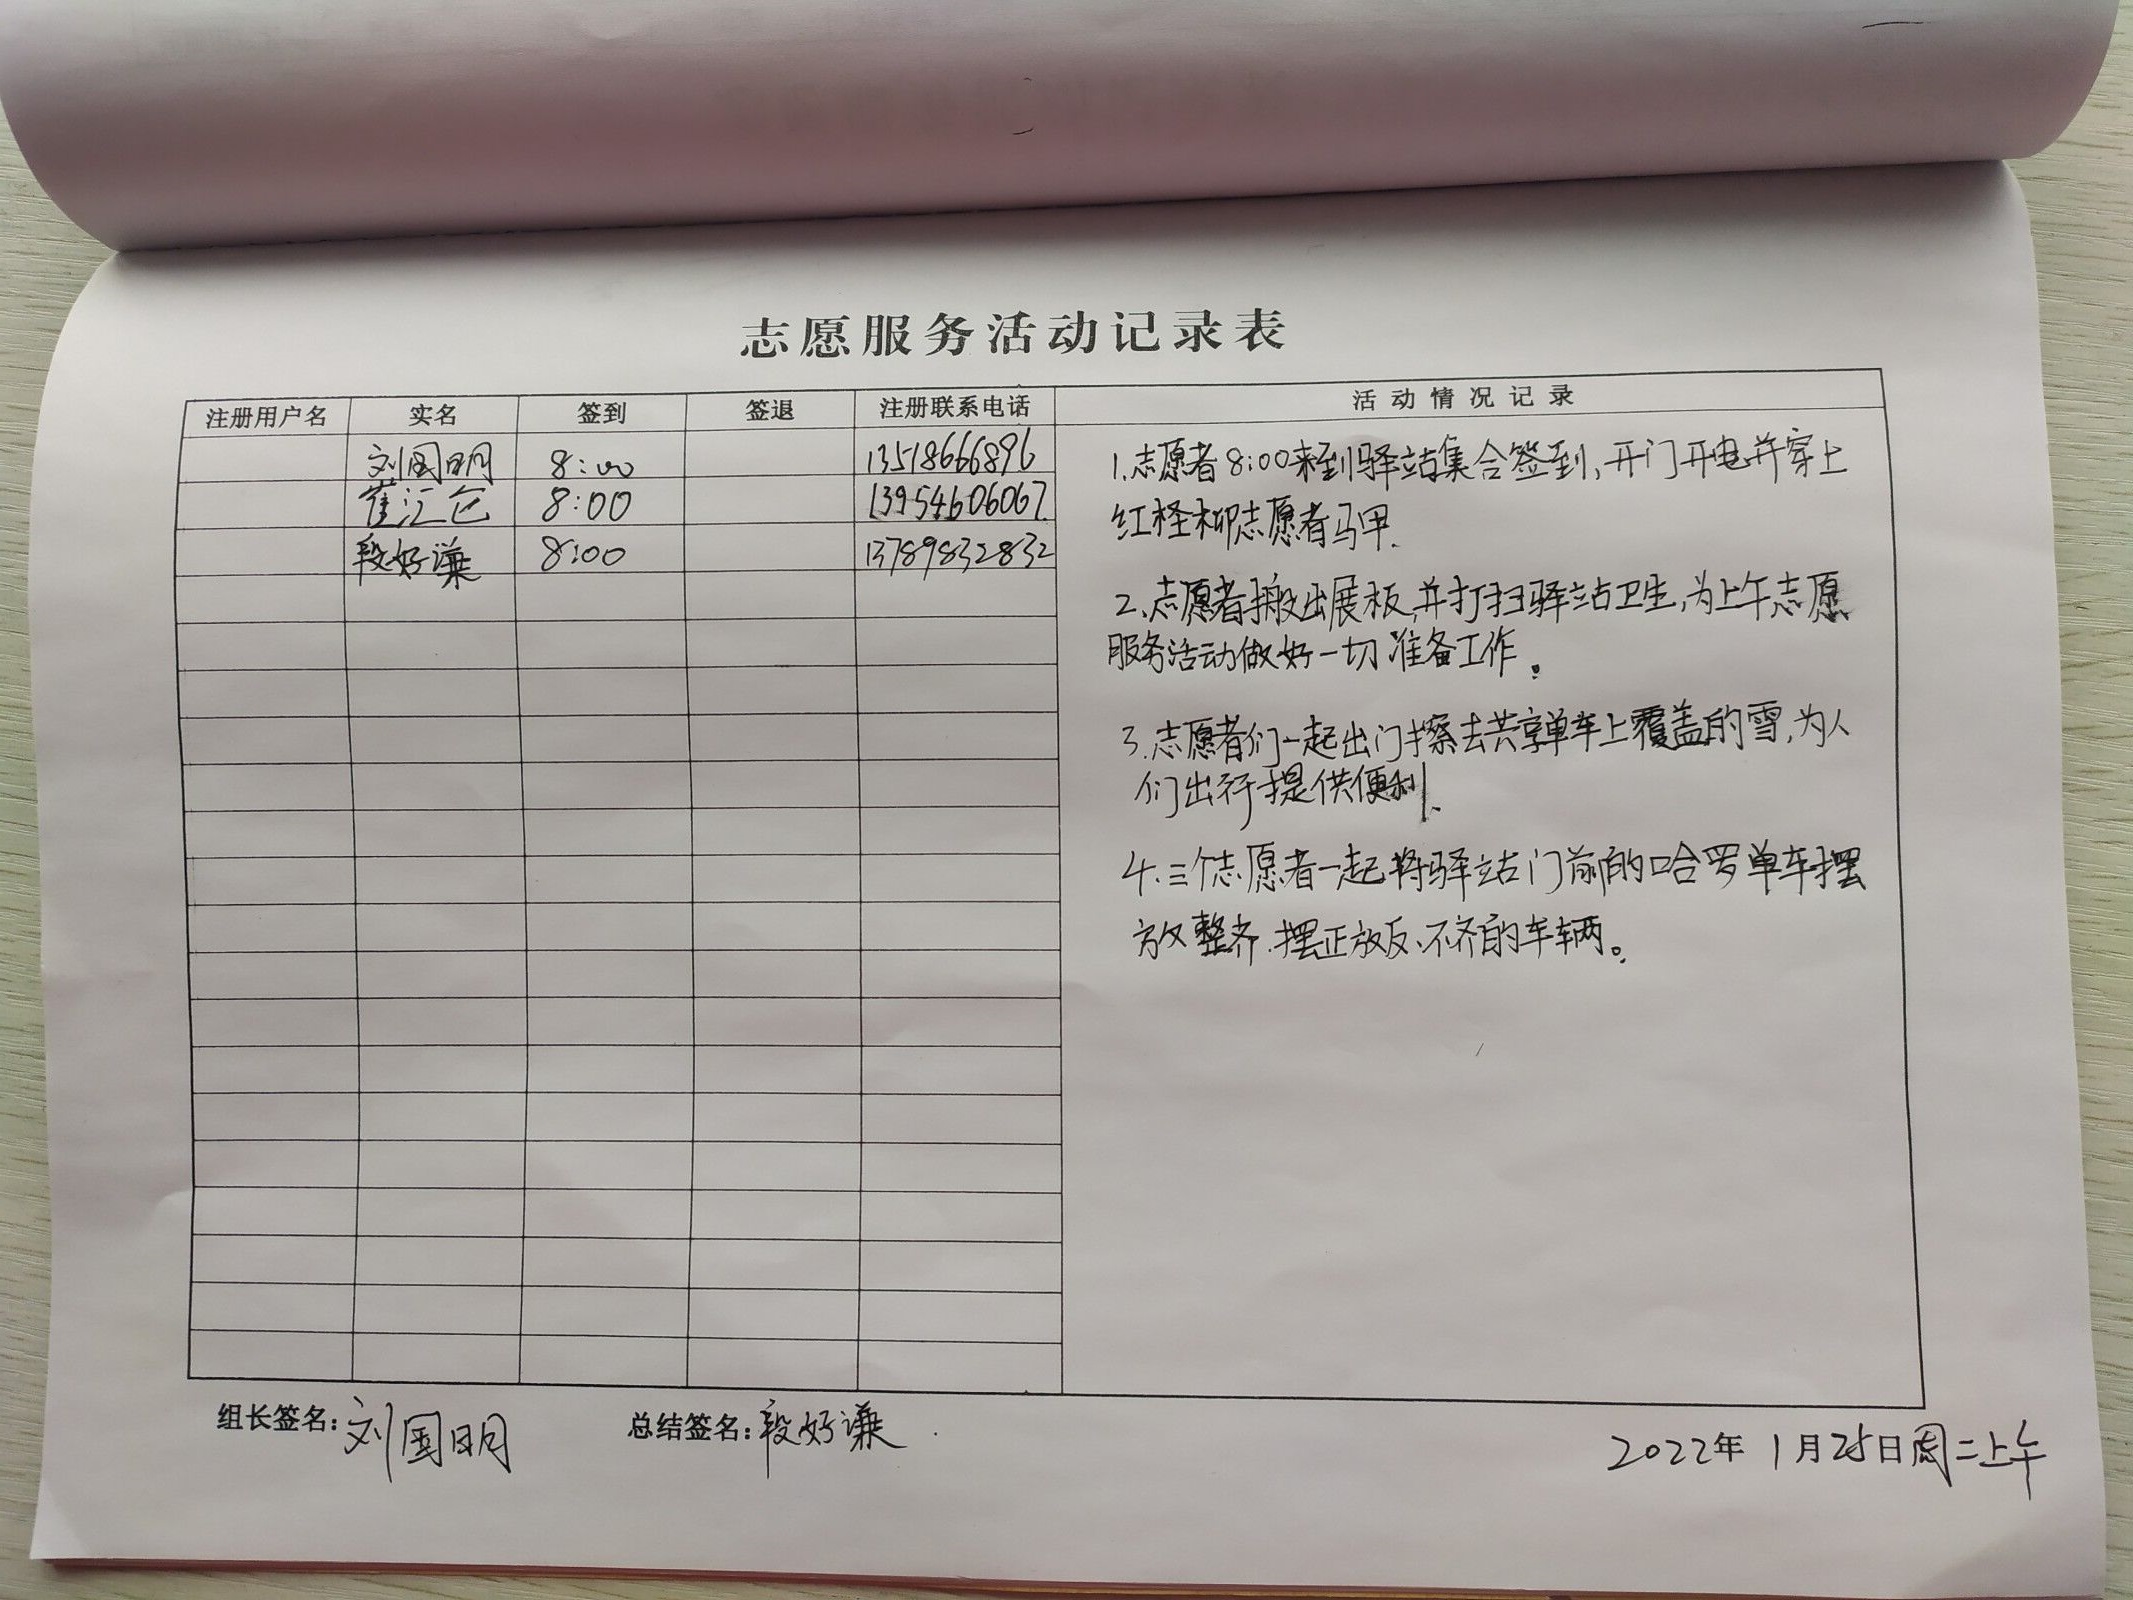 志愿服务活动记录表
注册用户名 实名 签到 签退 注册联系电话 活动情况记录
刘国明 8:00 13518666896
崔汇仑 8:00 13954606067
段好谦 8:00 13789832832
1.志愿者8:00来到驿站集合签到,开门开电并穿上
红柽柳志愿者马甲.
2.志愿者搬出展板,并打扫驿站卫生,为上午志愿
服务活动做好一切准备工作。
3.志愿者们一起出门擦去共享单车上覆盖的雪,为人
们出行提供便利.
4.三个志愿者一起将驿站门前的哈罗单车摆
放整齐.摆正放反、不齐的车辆。
组长签名:刘国明 总结签名:段好谦
2022年1月25日周二上午